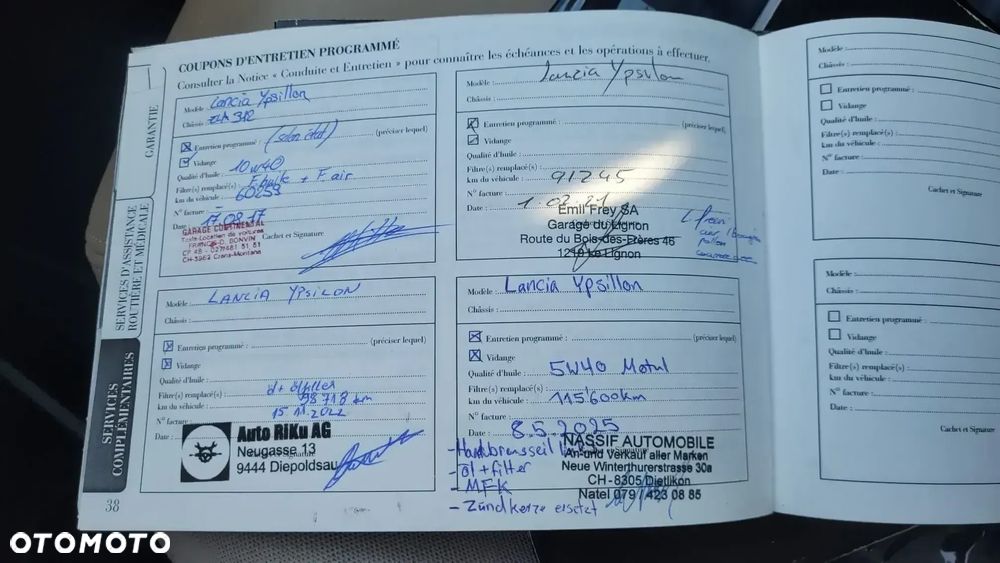 COUPONS D'ENTRETIEN PROGRAMMÉ
Consulter la Notice « Conduite et Entretien » pour connaître les échéances et les opérations à effectuer.
GARANTIE
SERVICES D'ASSISTANCE
ROUTIÈRE ET MÉDICALE
SERVICES
COMPLÉMENTAIRES
Modèle : Lancia Ypsillon
Châssis : ZLA 312
Entretien programmé : (selon état) (préciser lequel)
Vidange
Qualité d'huile : 10W40
Filtre(s) remplacé(s) : F. huile + F. air
km du véhicule : 60253
N° facture
Date : 17.08.17
Cachet et Signature
GARAGE CONTINENTAL
Taxis-Location de voitures
FRANCIS-D. BONVIN
CP 48 - 027/481 51 51
CH-3963 Crans-Montana
Modèle : Lancia Ypsilon
Châssis :
Entretien programmé : (préciser lequel)
Vidange
Qualité d'huile :
Filtre(s) remplacé(s) :
km du véhicule : 91245
N° facture :
Date : 1.02.21
Emil Frey SA
Garage du Lignon
Route du Bois-des-Frères 46
1219 Le Lignon
Modèle : LANCIA YPSILON
Châssis :
Entretien programmé : (préciser lequel)
Vidange
Qualité d'huile :
Filtre(s) remplacé(s) : öl + ölfilter
km du véhicule : 98718 km
N° facture 15 11.2022
Date :
Auto RiKu AG
Neugasse 13
9444 Diepoldsau
Modèle : Lancia Ypsillon
Châssis :
Entretien programmé : (préciser lequel)
Vidange
Qualité d'huile : 5W40 Motul
Filtre(s) remplacé(s) :
km du véhicule : 115'600km
N° facture :
Date : 8.5.2025
- Handbremsseil
- öl + filter
- MFK
- Zündkerze ersetzt
NASSIF AUTOMOBILE
An-und Verkauf aller Marken
Neue Winterthurerstrasse 30a
CH-8305 Dietlikon
Natel 079 / 423 08 85
38
Modèle :
Châssis :
Entretien programmé :
Vidange
Qualité d'huile :
Filtre(s) remplacé(s) :
km du véhicule :
N° facture :
Date :
Cachet et Signature
Modèle :
Châssis :
Entretien programmé :
Vidange
Qualité d'huile :
Filtre(s) remplacé(s) :
km du véhicule :
N° facture :
Date :
Cachet et Signature
OTOMOTO